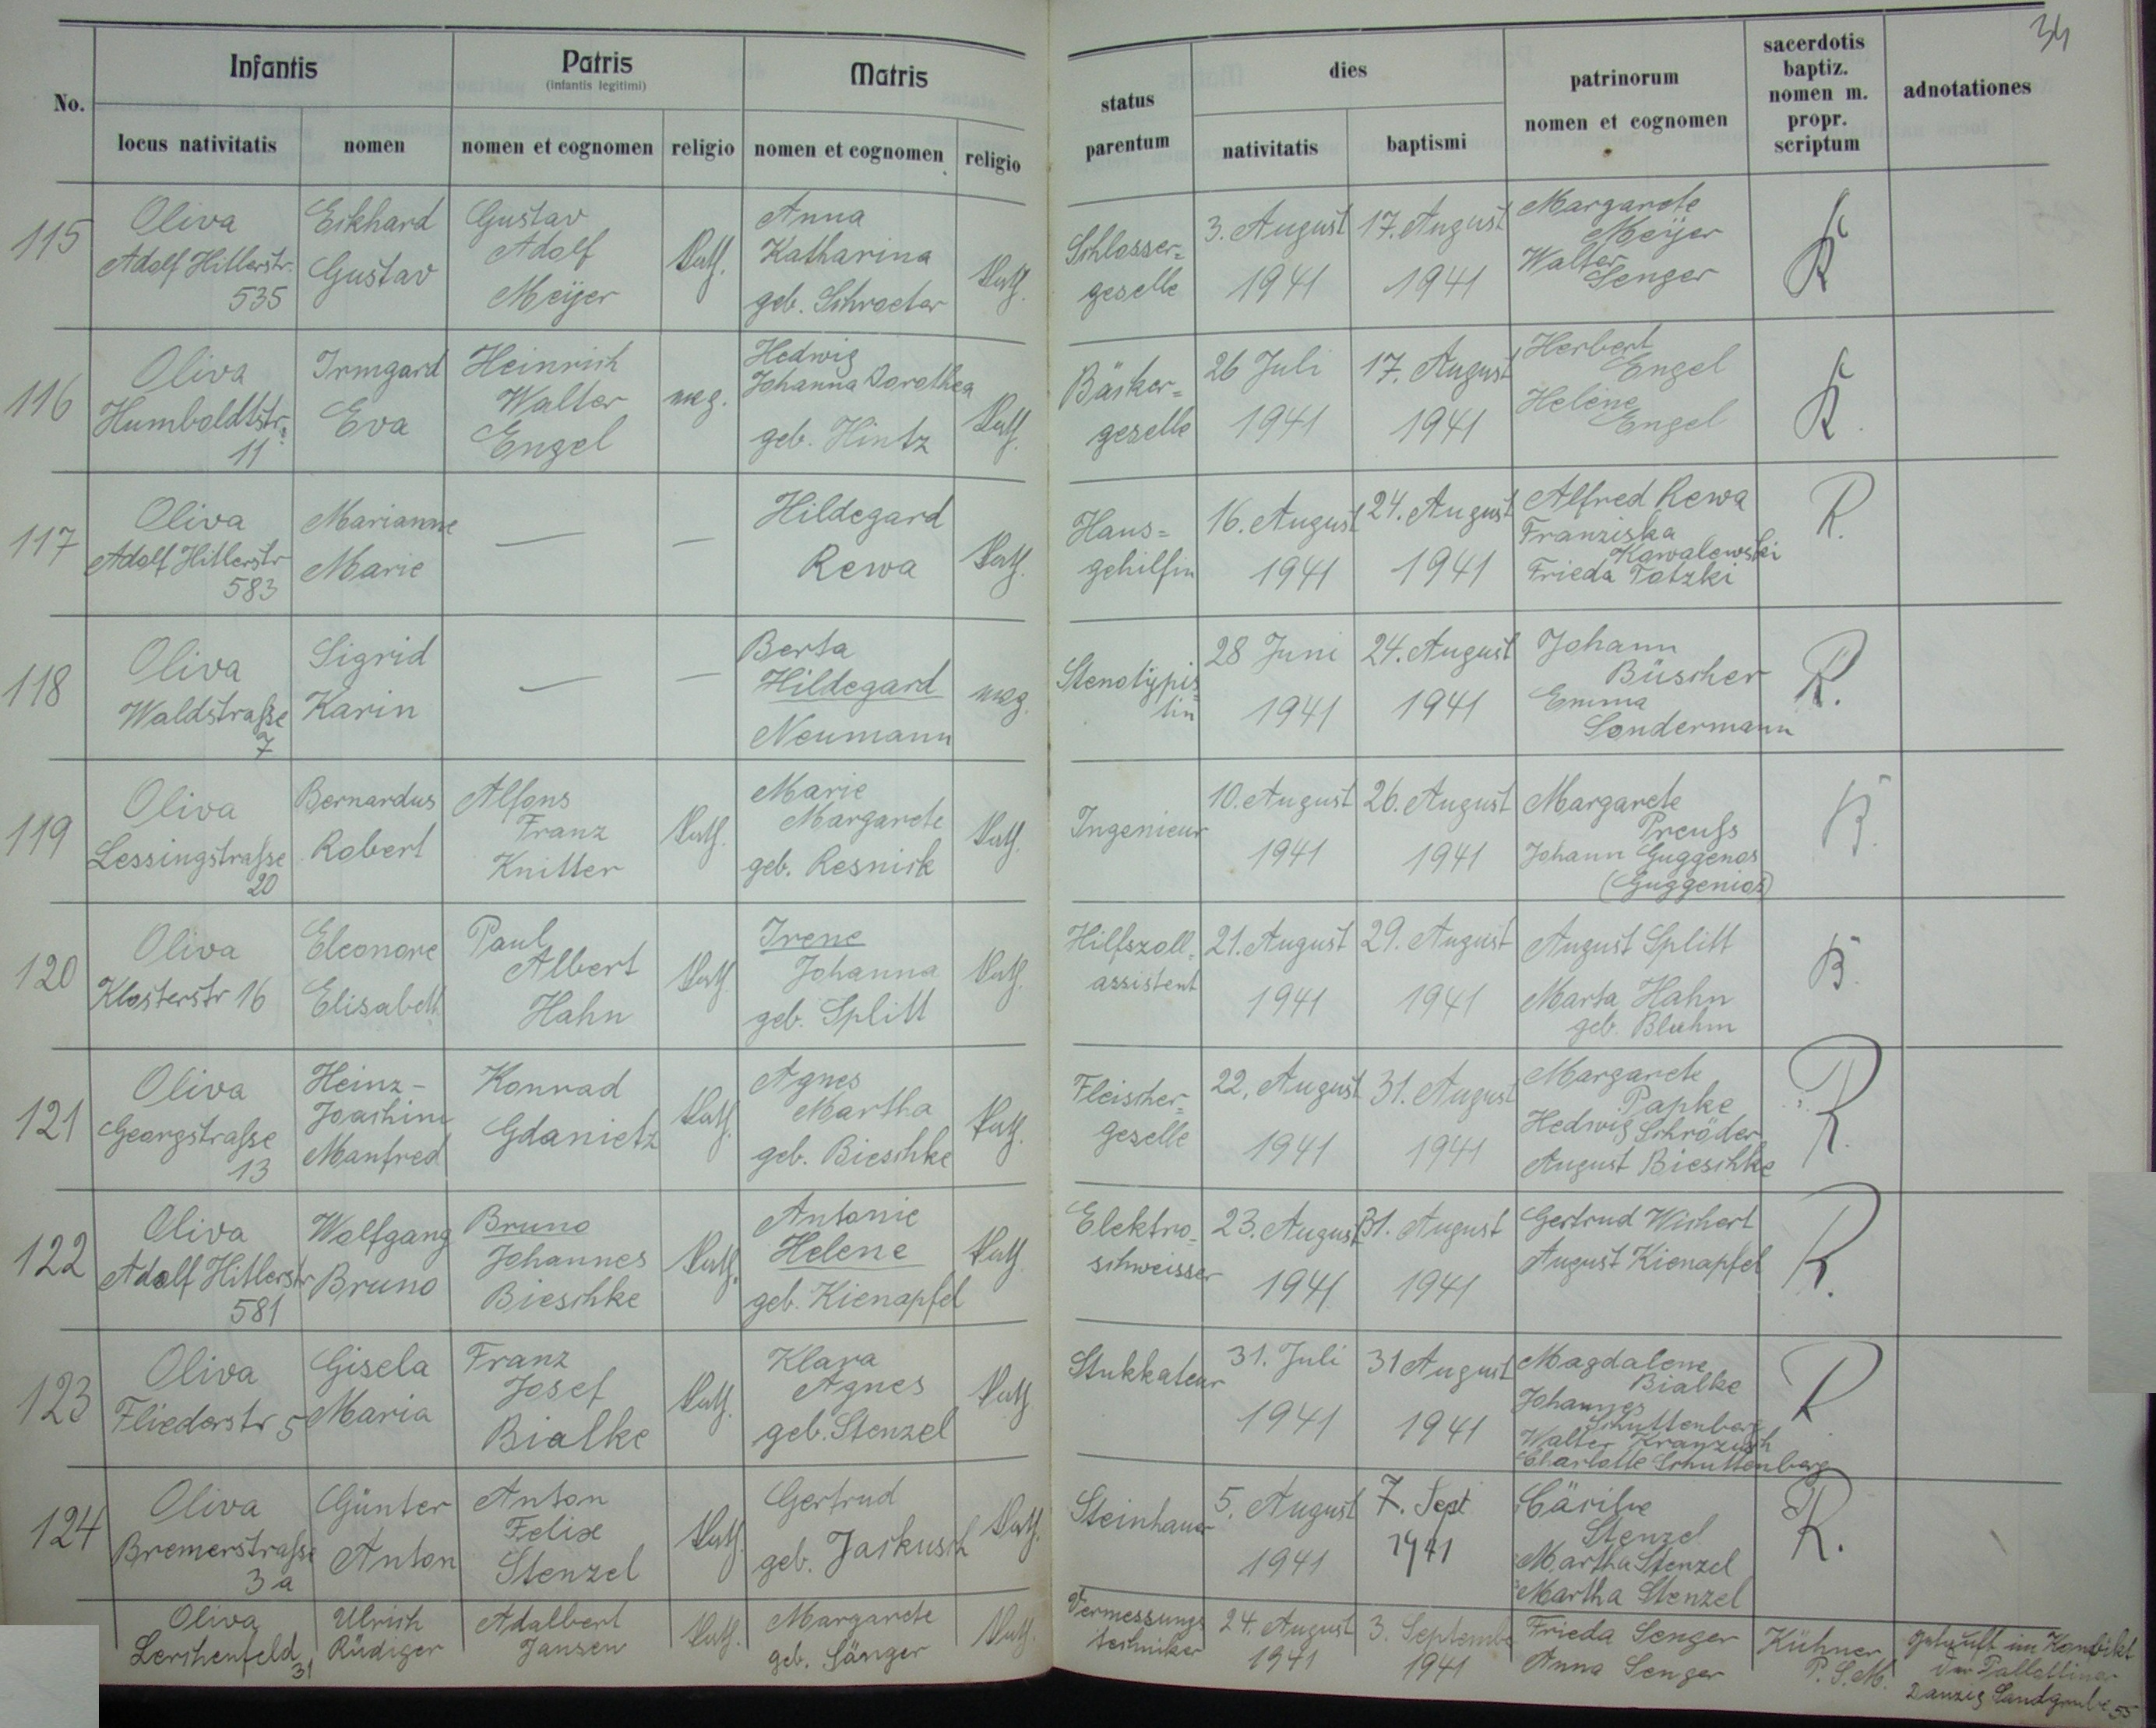 34
No.
Infantis
Patris
(infantis legitimi)
Matris
status parentum
dies
patrinorum nomen et cognomen
sacerdotis baptiz. nomen m. propr. scriptum
adnotationes
locus nativitatis
nomen
nomen et cognomen
religio
nomen et cognomen
religio
nativitatis
baptismi
115
Oliva
Adolf Hitlerstr.
535
Eckhard
Gustav
Gustav
Adolf
Meÿer
kath.
Anna
Katharina
geb. Schroeter
kath.
Schlosser=
geselle
3. August
1941
17. August
1941
Margarete
Meÿer
Walter
Senger
K
116
Oliva
Humboldtstr.
11
Irmgard
Eva
Heinrich
Walter
Engel
Hedwig
Johanna Dorothea
geb. Hintz
kath.
Bäcker=
geselle
26 Juli
1941
17. August
1941
Herbert
Engel
Helene
Engel
K
117
Oliva
Adolf Hitlerstr
583
Marianne
Marie
—
—
Hildegard
Rewa
kath.
Haus=
gehilfin
16. August
1941
24. August
1941
Alfred Rewa
Franziska
Kowalewski
Frieda Totzki
R.
118
Oliva
Waldstraße
7
Sigrid
Karin
—
—
Berta
Hildegard
Neumann
Stenotÿpis=
tin
28 Juni
1941
24. August
1941
Johann
Büscher
Emma
Sondermann
R.
119
Oliva
Lessingstraße
20
Bernardus
Robert
Alfons
Franz
Knitter
kath.
Marie
Margarete
geb. Resnick
kath.
Ingenieur
10. August
1941
26. August
1941
Margarete
Preuß
Johann Guggenos
(Guggenios)
B.
120
Oliva
Klosterstr 16
Eleonore
Elisabeth
Paul
Albert
Hahn
kath.
Irene
Johanna
geb. Splitt
kath.
Hilfszoll=
assistent
21. August
1941
29. August
1941
August Splitt
Marta Hahn
geb. Bluhm
B.
121
Oliva
Georgstraße
13
Heinz-
Joachim
Manfred
Konrad
Gdanietz
kath.
Agnes
Martha
geb. Bieschke
kath.
Fleischer=
geselle
22. August
1941
31. August
1941
Margarete
Papke
Hedwig Schröder
August Bieschke
R.
122
Oliva
Adolf Hitlerstr
581
Wolfgang
Bruno
Bruno
Johannes
Bieschke
kath.
Antonie
Helene
geb. Kienapfel
kath.
Elektro=
schweisser
23. August
1941
31. August
1941
Gertrud Wichert
August Kienapfel
R.
123
Oliva
Fliederstr 5
Gisela
Maria
Franz
Josef
Bialke
kath.
Klara
Agnes
geb. Stenzel
kath.
Stukkateur
31. Juli
1941
31 August
1941
Magdalene
Bialke
Johannes
Schuttenberg
Walter
Charlotte Schuttenberg
R
124
Oliva
Bremerstraße
3a
Günter
Anton
Anton
Felix
Stenzel
kath.
Gertrud
geb. Jackusch
kath.
Steinhauer
5. August
1941
7. Sept
1941
Cäcilie
Stenzel
Martha Stenzel
Martha Stenzel
R.
Oliva
Lerchenfeld
31
Ulrich
Rüdiger
Adalbert
Jansen
kath.
Margarete
geb. Sänger
kath.
Vermessungs
techniker
24. August
1941
3. Septembe
1941
Frieda Senger
Anna Senger
Kühner
P. S. M.
getauft im Konvikt
der Pallottiner
Danzig Sandgrube 55